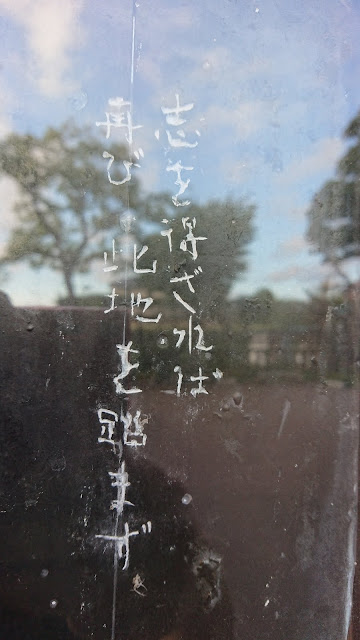 志を得ざれば
再び此地を踏まず